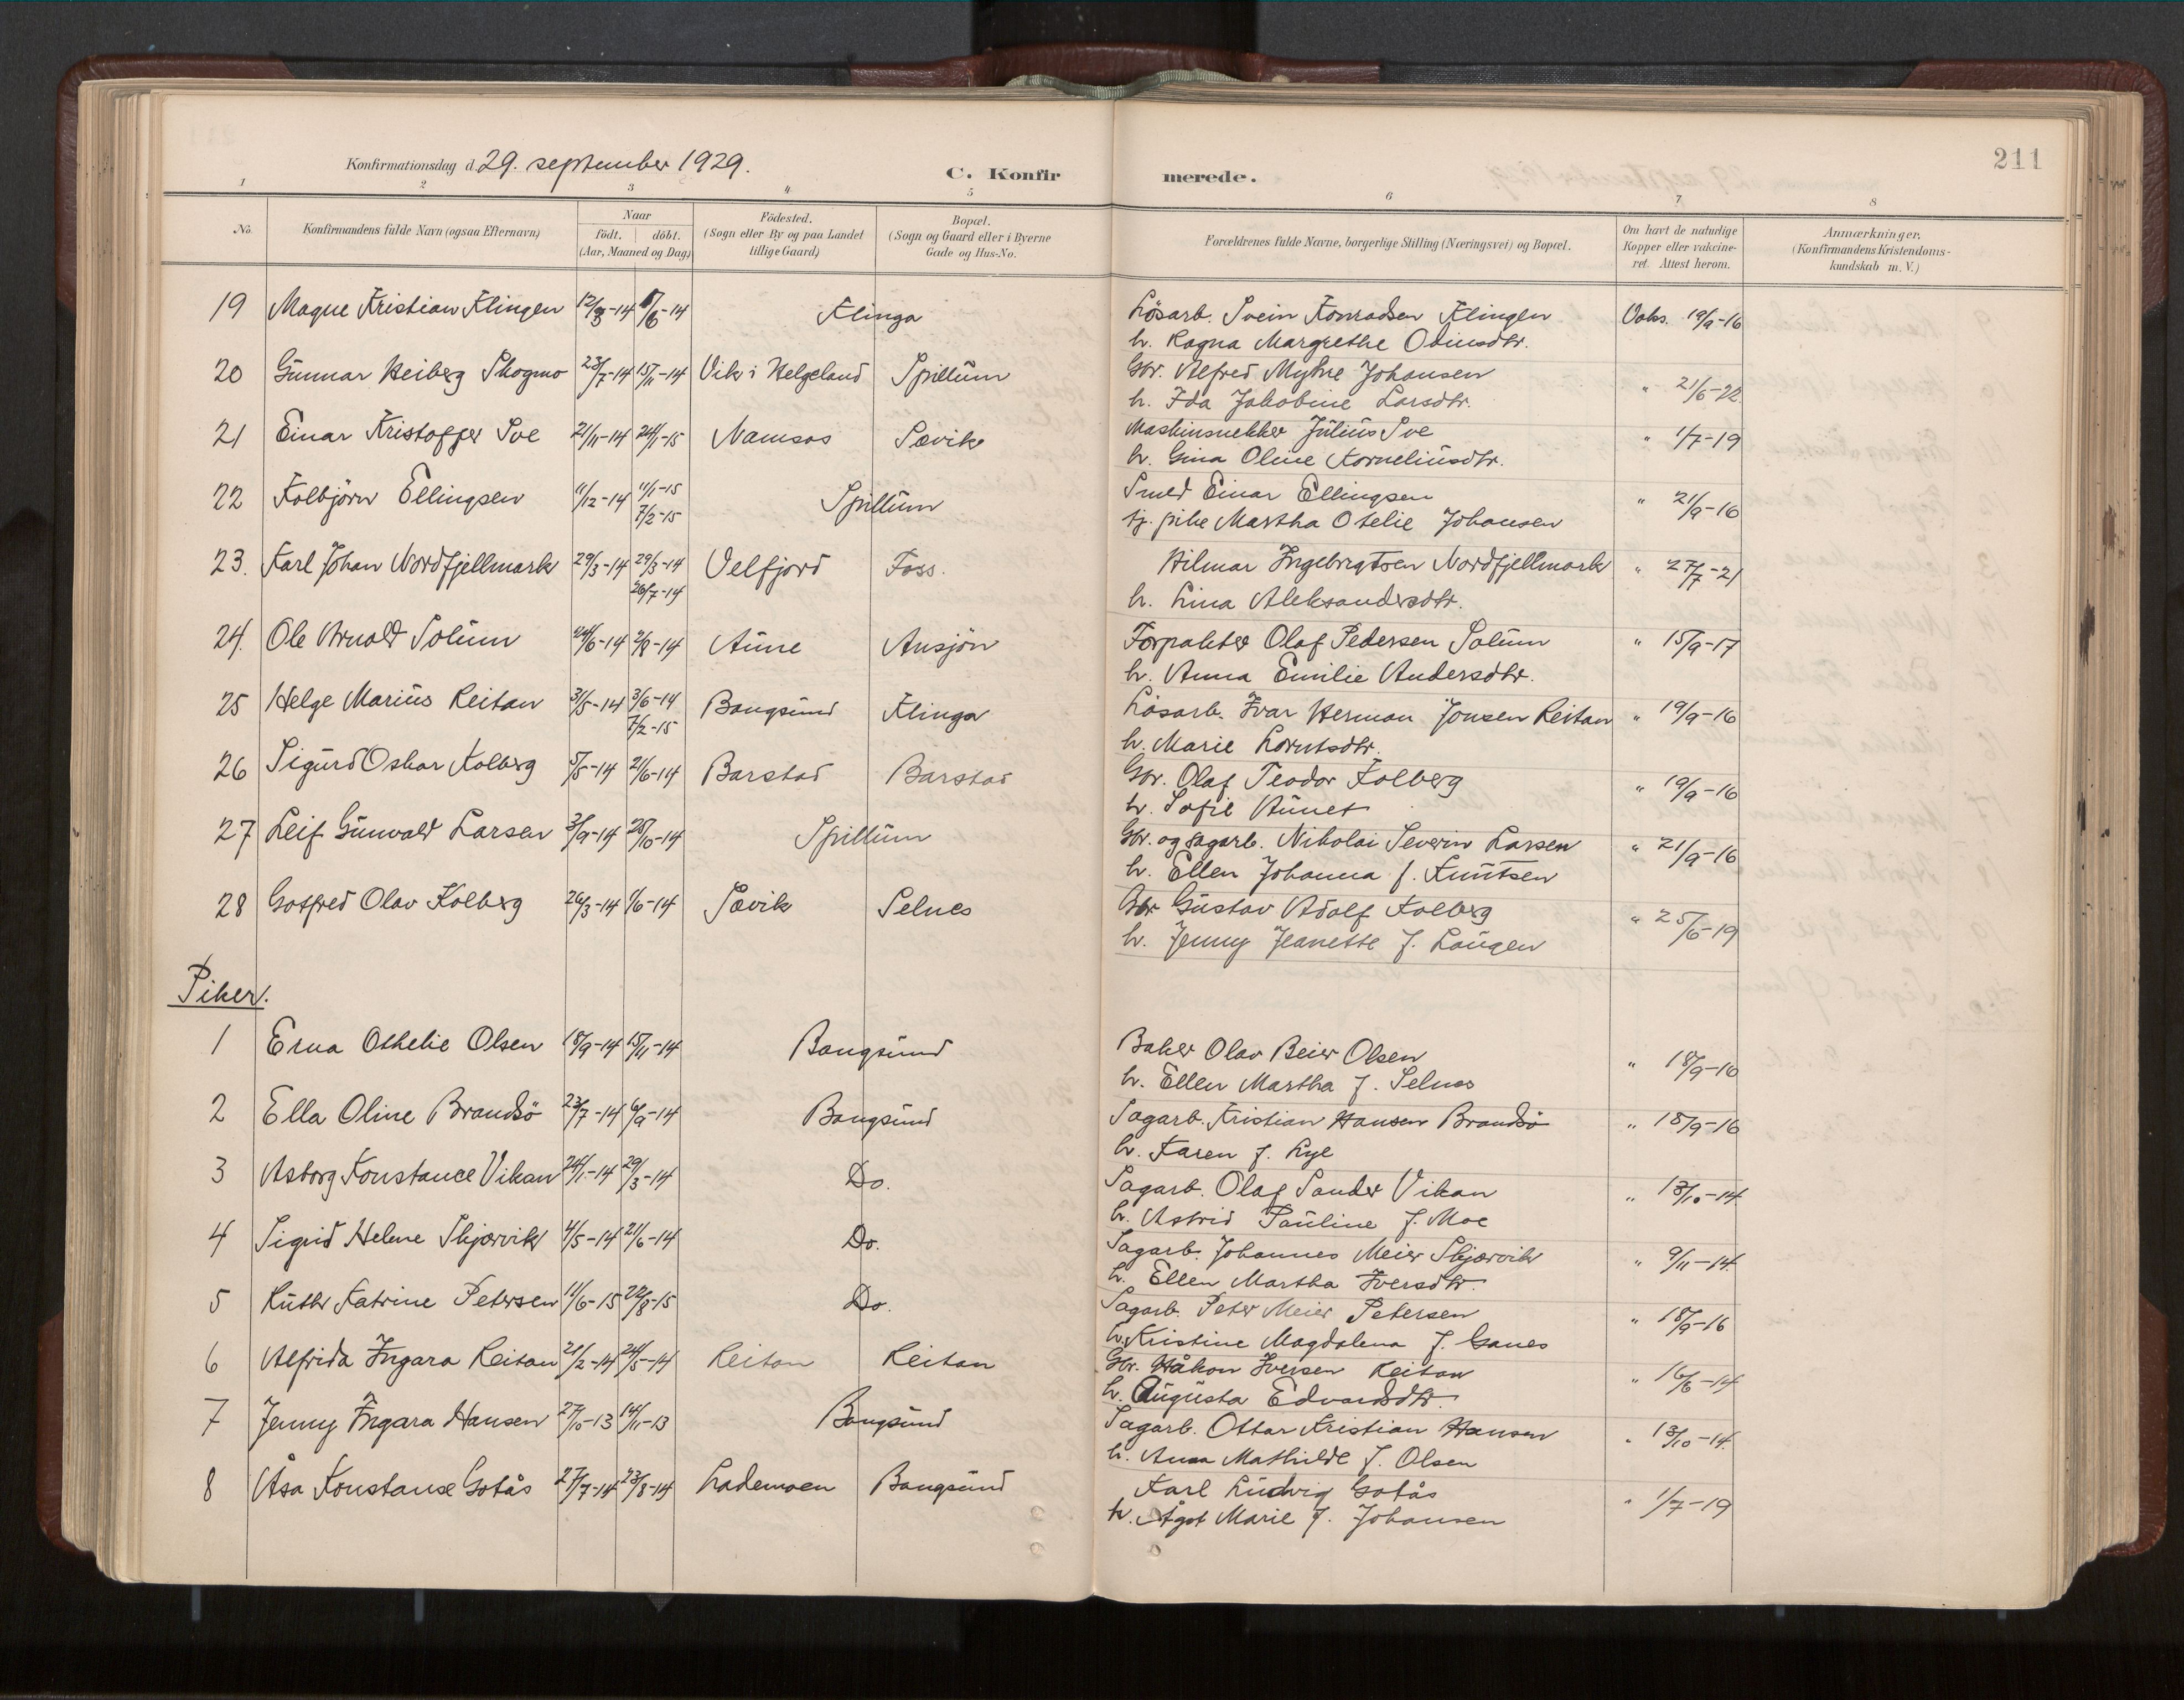 211
Konfirmationsdag d. 29. september 1929.
C. Konfir merede.
1 2 3 4 5 6 7 8
No. Konfirmandens fulde Navn (ogsaa Efternavn) Naar födt. döbt. (Aar, Maaned og Dag) Födested. (Sogn eller By og paa Landet tillige Gaard) Bopæl. (Sogn og Gaard eller i Byerne Gade og Hus-No. Forældrenes fulde Navne, borgerlige Stilling (Næringsvei) og Bopæl. Om havt de naturlige Kopper eller vakcineret. Attest herom. Anmærkninger. (Konfirmandens Kristendomskundskab m. V.)
19 Magne Kristian Klingen 12/3-14 /6-14 Klinga Lösarb. Svein Konradsen Klingen Vaks. 19/9-16
h. Ragna Margrethe Odinsdtr.
20 Gunnar Heiberg Skogmo 23/7-14 15/11-14 Vik i Helgeland Spillum Gbr. Alfred Myhre Johansen " 21/6-22
h. Ida Jakobine Larsdtr.
21 Einar Kristoffer Sve 21/11-14 24/1-15 Namsos Sævik Maskinsnekker Julius Sve " 1/7-19
h. Gina Oline Korneliusdtr.
22 Kolbjörn Ellingsen 11/12-14 11/1-15 Spillum Smed Einar Ellingsen " 21/9-16
7/2-15 tj. pike Martha Otelie Johansen
23. Karl Johan Nordfjellmark 29/3-14 29/3-14 Velfjord Foss. Hilmar Ingebrigtsen Nordfjellmark " 27/7-21
26/7-14 h. Lina Aleksandersdtr.
24. Ole Arnold Solum 24/6-14 2/8-14 Aune Ansjön Forpakter Olaf Pedersen Solum " 15/9-17
h. Anna Emilie Andersdtr.
25 Helge Marius Reitan 31/5-14 3/6-14 Bangsund Klinga Lösarb. Ivar Herman Jonsen Reitan " 19/9-16
7/2-15 h. Marie Lorntsdtr.
26 Sigurd Oskar Kolberg 5/5-14 21/6-14 Barstad Barstad Gbr. Olaf Teodor Kolberg " 19/9-16
h. Sofie Aunet
27 Leif Gunvald Larsen 3/9-14 25/10-14 Spillum Gbr. og sagarb. Nikolai Severin Larsen " 21/9-16
h. Ellen Johanna f. Knutsen
28 Gotfred Olav Kolberg 26/3-14 1/6-14 Sævik Selnes Gbr Gustav Adolf Kolberg " 25/6-19
h. Jenny Jeanette f. Laugen
Piker.
1 Erna Othelie Olsen 18/9-14 15/11-14 Bangsund Baker Olav Beier Olsen " 18/9-16
h. Ellen Martha f. Selnes
2 Ella Oline Brandsö 23/7-14 6/9-14 Bangsund Sagarb. Kristian Hansen Brandsö " 18/9-16
h. Karen f. Lye
3 Asborg Konstance Vikan 24/1-14 29/3-14 Do. Sagarb. Olaf Sander Vikan " 13/10-14.
h. Astrid Pauline f. Moe
4 Sigrid Helene Skjærvik 4/5-14 21/6-14 Do. Sagarb. Johannes Meier Skjærvik " 9/11-14.
h. Ellen Martha Iversdtr.
5 Ruth Katrine Petersen 11/6-15 22/8-15 Do. Sagarb. Peter Meier Petersen " 18/9-16
h. Kristine Magdalena f. Ganes
6 Alfrida Ingara Reitan 21/2-14 24/5-14 Reitan Reitan Gbr. Håkon Iversen Reitan " 16/6-14
h. Augusta Edvardsdtr.
7 Jenny Ingara Hansen 27/10-13 14/11-13 Bangsund Sagarb. Ottar Kristian Hansen " 13/10-14.
h. Anna Mathilde f. Olsen
8 Åsa Konstanse Gotås 27/7-14 23/8-14 Lademoen Bangsund Karl Ludvig Gotås " 1/7-19
h. Ågot Marie f. Johansen